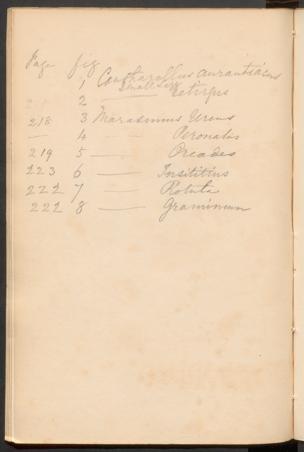 Page fig
1 Cantharellus aurantiacus
2 —— retirpus
218 3 Marasmius Urens
— 4 —— Peronatus
219 5 —— Oreades
223 6 —— Insititius
222 7 —— Rotula
222 8 —— Graminum